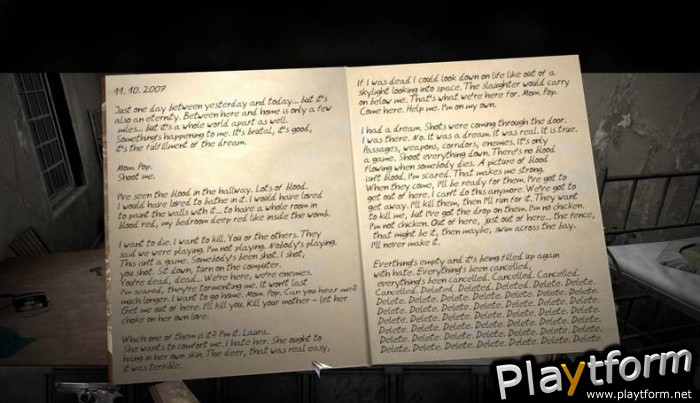 11.10.2007
Just one day between yesterday and today... but it's
also an eternity. Between here and home is only a few
miles... but it's a whole world apart as well.
Something's happening to me. It's brutal, it's good,
it's the fulfillment of the dream.
Mom. Pop.
Shoot me.
I've seen the blood in the hallway. Lots of blood.
I would have loved to bathe in it. I would have loved
to paint the walls with it... to have a whole room in
blood red, my bedroom deep red like inside the womb.
I want to die. I want to kill. You or the others. They
said we were playing. I'm not playing. Nobody's playing.
This isn't a game. Somebody's been shot. I shot,
you shot. Sit down, turn on the computer.
You're dead, dead... We're here, we're enemies.
I'm scared, they're tormenting me. It won't last
much longer. I want to go home. Mom. Pop. Can you hear me?
Get me out of here. I'll kill you. Kill your mother - let her
choke on her own love.
Which one of them is it? I'm it. Laura.
She wants to comfort me. I hate her. She ought to
hang in her own skin. The deer, that was real easy,
it was terrible.
If I was dead I could look down on life like out of a
skylight looking into space. The slaughter would carry
on below me. That's what we're here for. Mom. Pop.
Come here. Help me. I'm on my own.
I had a dream. Shots were coming through the door.
I was there. No. It was a dream. It was real. It is true.
Passages, weapons, corridors, enemies. It's only
a game. Shoot everything down. There's no blood
flowing when somebody dies. A picture of blood
isn't blood. I'm scared. That makes me strong.
When they come, I'll be ready for them. I've got to
get out of here. I can't do this anymore. We've got to
get away. I'll kill them, then I'll run for it. They want
to kill me, but I've got the drop on them. I'm no chicken.
I'm not chicken. Out of here, just out of here... the fence,
that might be it, then maybe, swim across the bay.
I'll never make it.
Everything's empty and it's being filled up again
with hate. Everything's been cancelled,
everything's been cancelled. Cancelled. Cancelled.
Cancelled. Deleted. Deleted. Deleted. Delete. Delete.
Delete. Delete. Delete. Delete. Delete. Delete. Delete.
Delete. Delete. Delete. Delete. Delete. Delete. Delete.
Delete. Delete. Delete. Delete. Delete. Delete. Delete.
Delete. Delete. Delete. Delete. Delete. Delete. Delete.
Delete. Delete. Delete. Delete. Delete. Delete. Delete.
Playtform
www.playtform.net